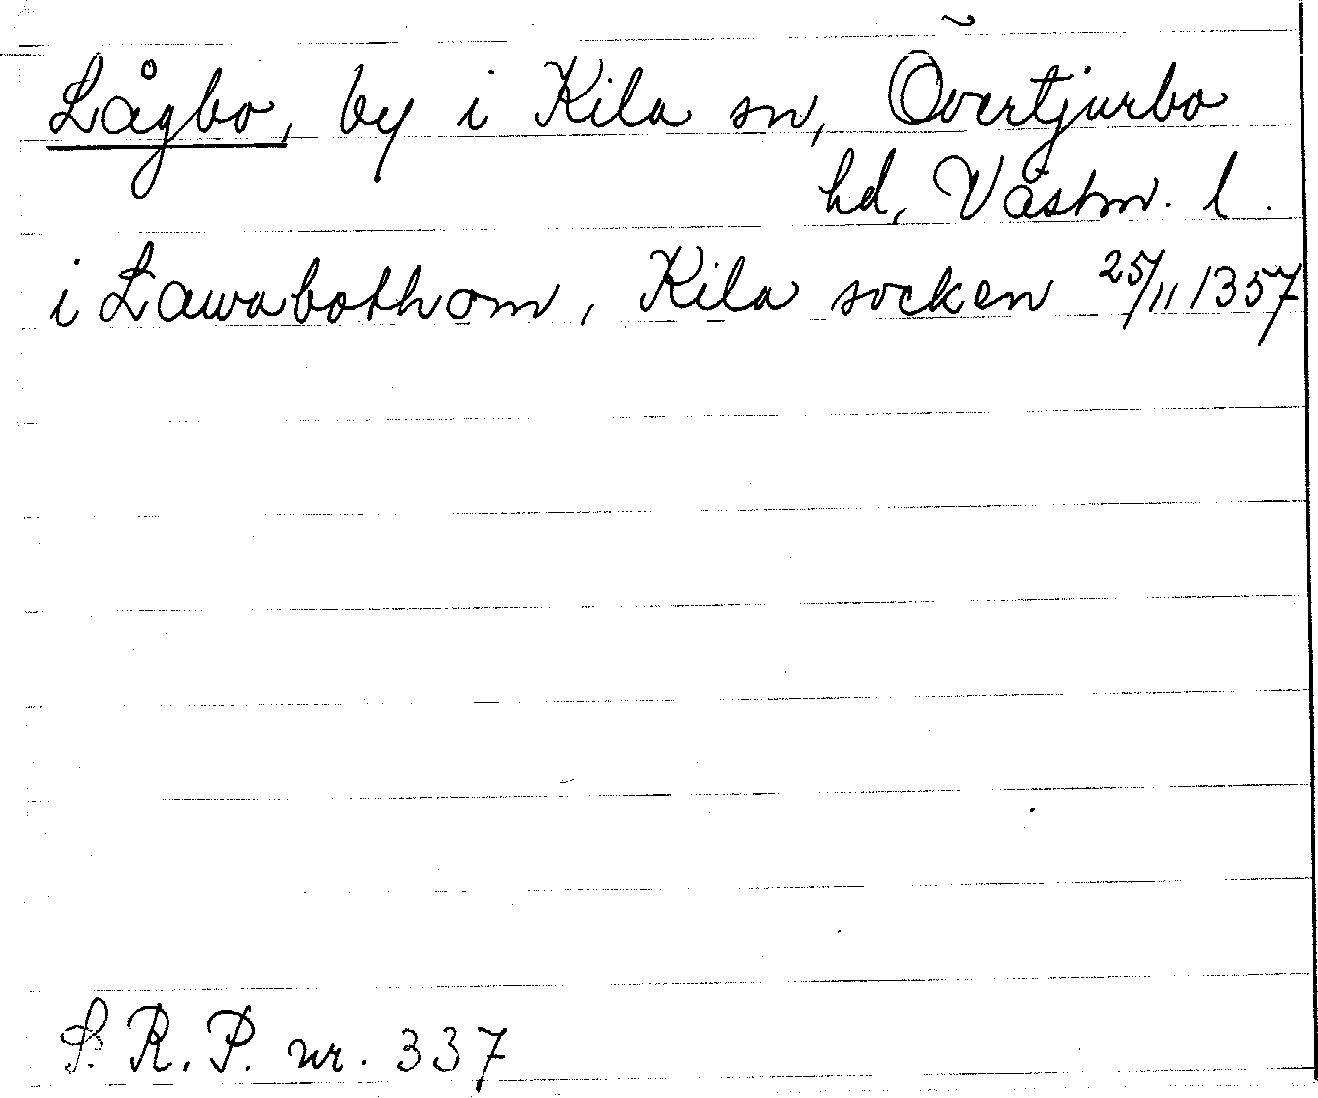 Lågbo, by i Kila sn, Övertjurbo
hd, Västm. l.
i Lawabothom, Kila socken 25/11 1357
S. R. P. nr. 337